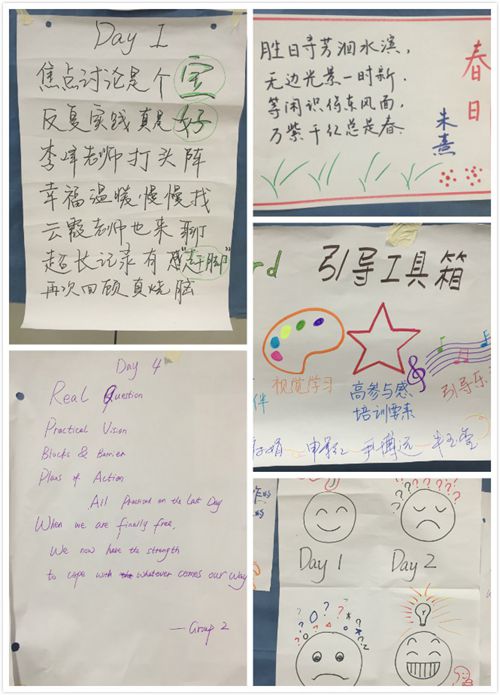 Day 1
焦点讨论是个宝
反复实践真是好
李峰老师打头阵
幸福温暖慢慢找
云霞老师也来聊
超长记录有感“赶脚”
再次回顾真烧脑
胜日寻芳泗水滨，
无边光景一时新
等闲识得东风面，
万紫千红总是春
春日
朱熹
引导工具箱
视觉学习
高参与感
培训要素
引导乐
伴
Day 4
Real Question
Practical Vision
Blocks & Barrier
Plans of Action
All practiced on the last Day
When we are finally free,
We now have the strength
to cope with whatever comes our way
—Group 2
Day 1
Day 2